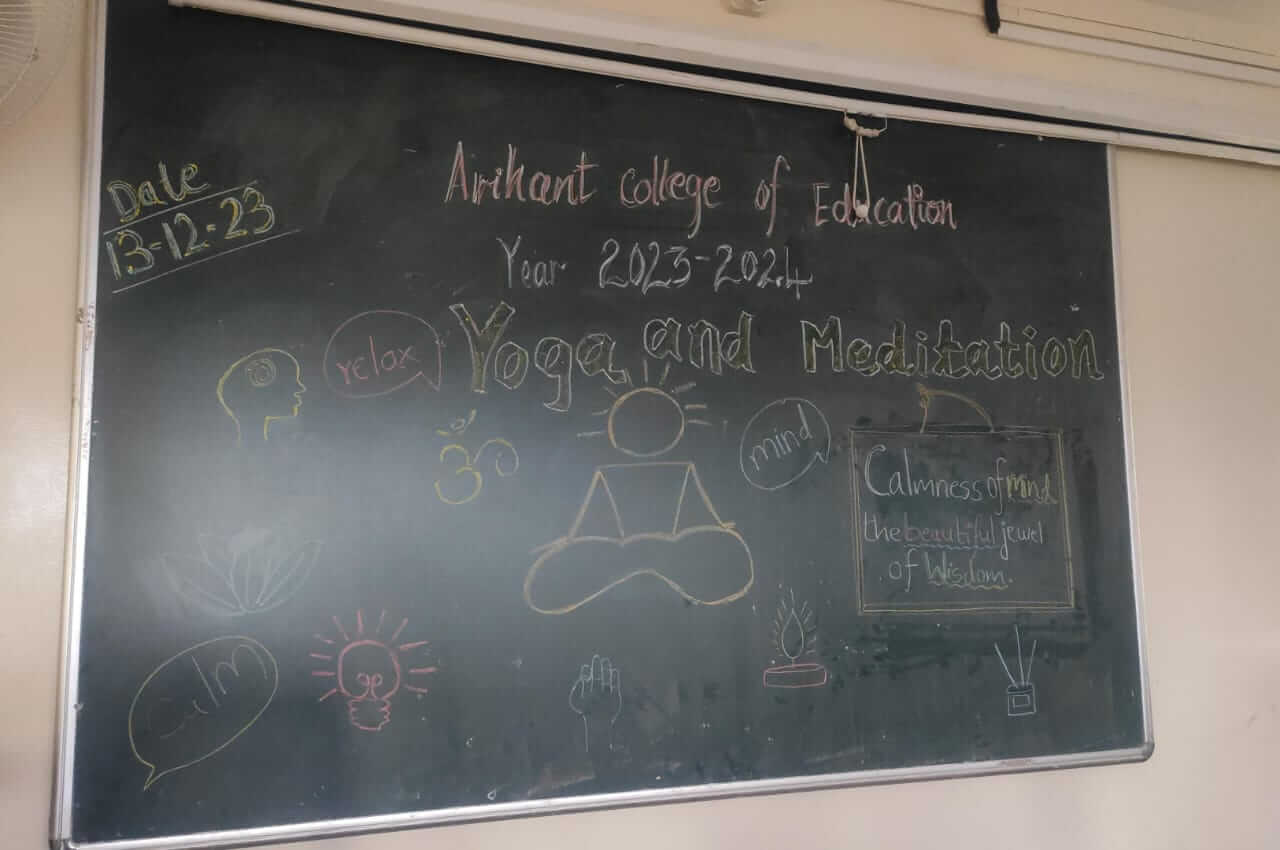 Date
13-12-23
Arihant College of Education
Year 2023-2024
Yoga and Meditation
relax
ॐ
mind
Calmness of mind
the beautiful jewel
of Wisdom.
Calm